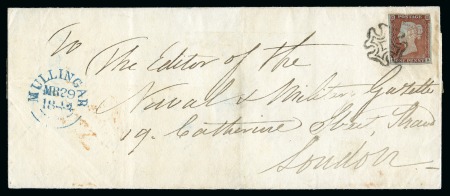 To
The Editor of the
Naval & Military Gazette
19. Catherine Street, Strand
London
MULLINGAR
MR 29
1844
POSTAGE